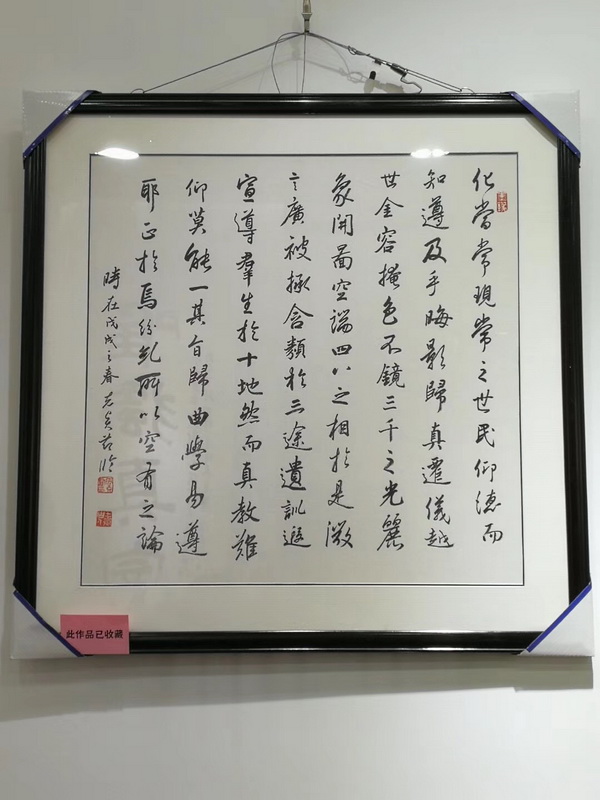 化當常現常之世民仰德而
知遵及乎晦影歸真遷儀越
世金容掩色不鏡三千之光麗
象開圖空端四八之相於是微
言廣被拯含類於三途遺訓遐
宣導羣生於十地然而真教難
仰莫能一其旨歸曲學易遵
耶正於焉紛糺所以空有之論
時在戊戌之春臨
此作品已收藏